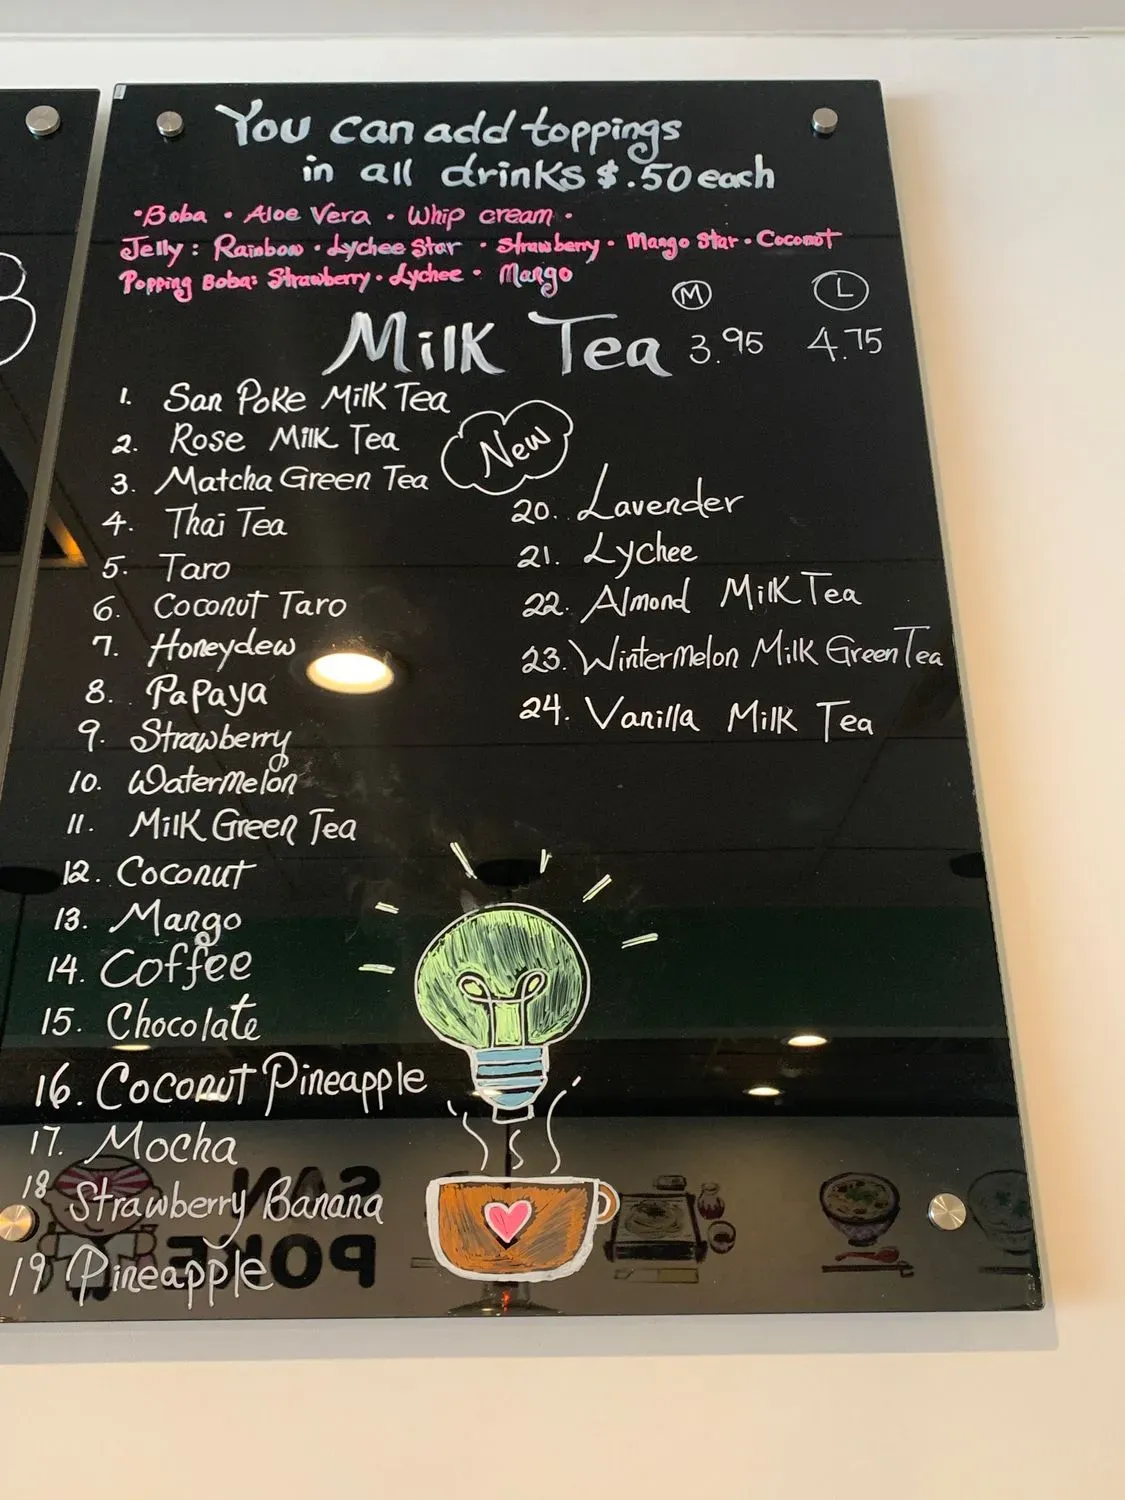 You can add toppings
in all drinks $.50 each
•Boba • Aloe Vera • Whip cream •
Jelly: Rainbow • Lychee Star • Strawberry • Mango Star • Coconut
Popping Boba: Strawberry • Lychee • Mango
M L
Milk Tea 3.95 4.75
1. San Poke Milk Tea
2. Rose Milk Tea
New
3. Matcha Green Tea
4. Thai Tea
5. Taro
6. Coconut Taro
7. Honeydew
8. Papaya
9. Strawberry
10. Watermelon
11. Milk Green Tea
12. Coconut
13. Mango
14. Coffee
15. Chocolate
16. Coconut Pineapple
17. Mocha
18 Strawberry Banana
19 Pineapple
20. Lavender
21. Lychee
22. Almond Milk Tea
23. Wintermelon Milk Green Tea
24. Vanilla Milk Tea
SAN
POKE